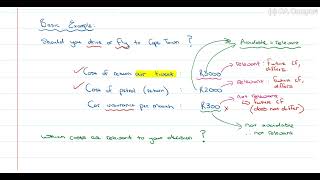 Basic Example:
Should you drive or fly to Cape Town ?
Avoidable = relevant
relevant: future cf,
differs
✓ Cost of return air ticket : R3000
relevant: future cf,
differs
✓ Cost of petrol (return) : R2000
not relevant
Car insurance per month : R300 x
→ future cf
(does not differ)
not avoidable
∴ not relevant
Which costs are relevant to your decision ?